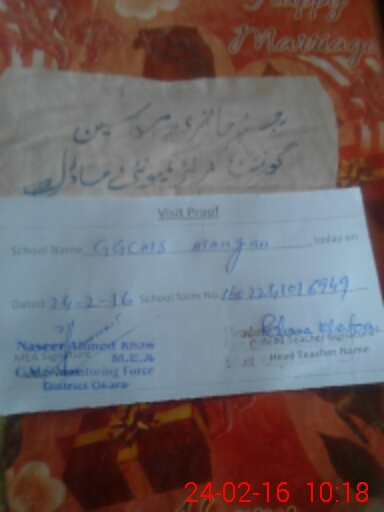 Happy
Marriage
رجسٹر حاضری مدرسین
گورنمنٹ گرلز کمیونٹی ماڈل
Visit Proof
School Name GGCMS
Dated 24-2-16 School form No.
Naseer Ahmed Khan
MEA Signature M.E.A
C.M. Monitoring Force
District Okara
Head Teacher Signature
Head Teacher Name
24-02-16 10:18